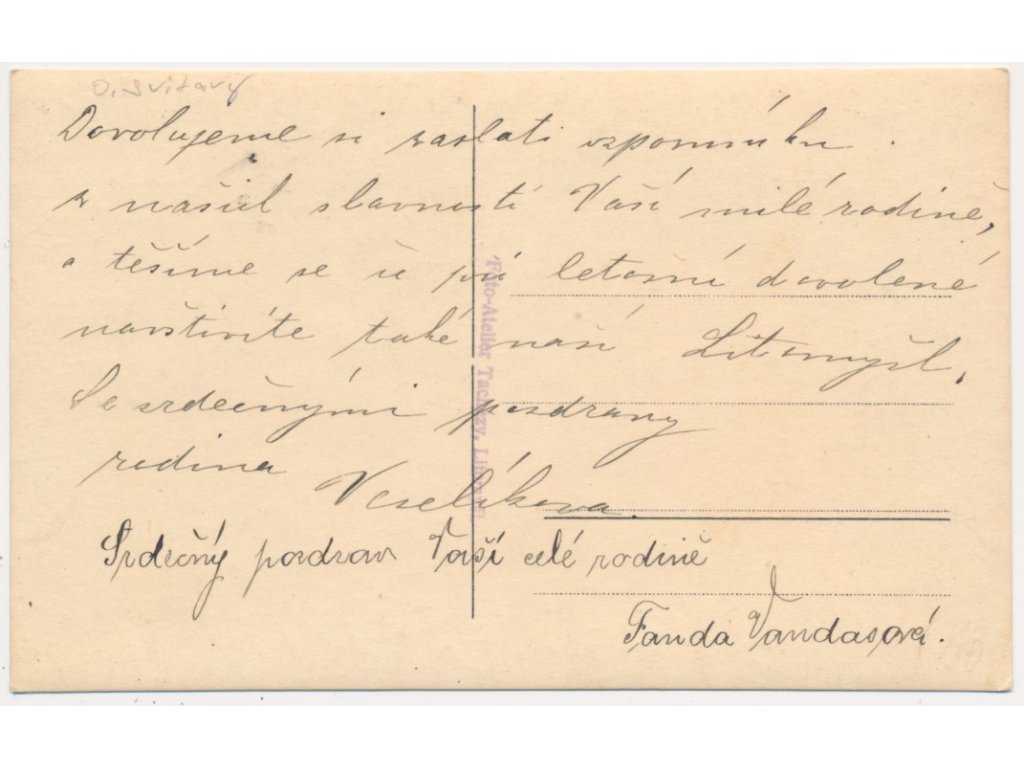 O. Svitavy
Dovolujeme si zaslati vzpomínku
z našich slavností Vaší milé rodině,
a těšíme se že při letošní dovolené
navštívíte také naši Litomyšl.
Se srdečnými pozdravy
rodina
Veselíkova.
Srdečný pozdrav Vaší celé rodině
Fanda Vandasová.
Foto-Atelier